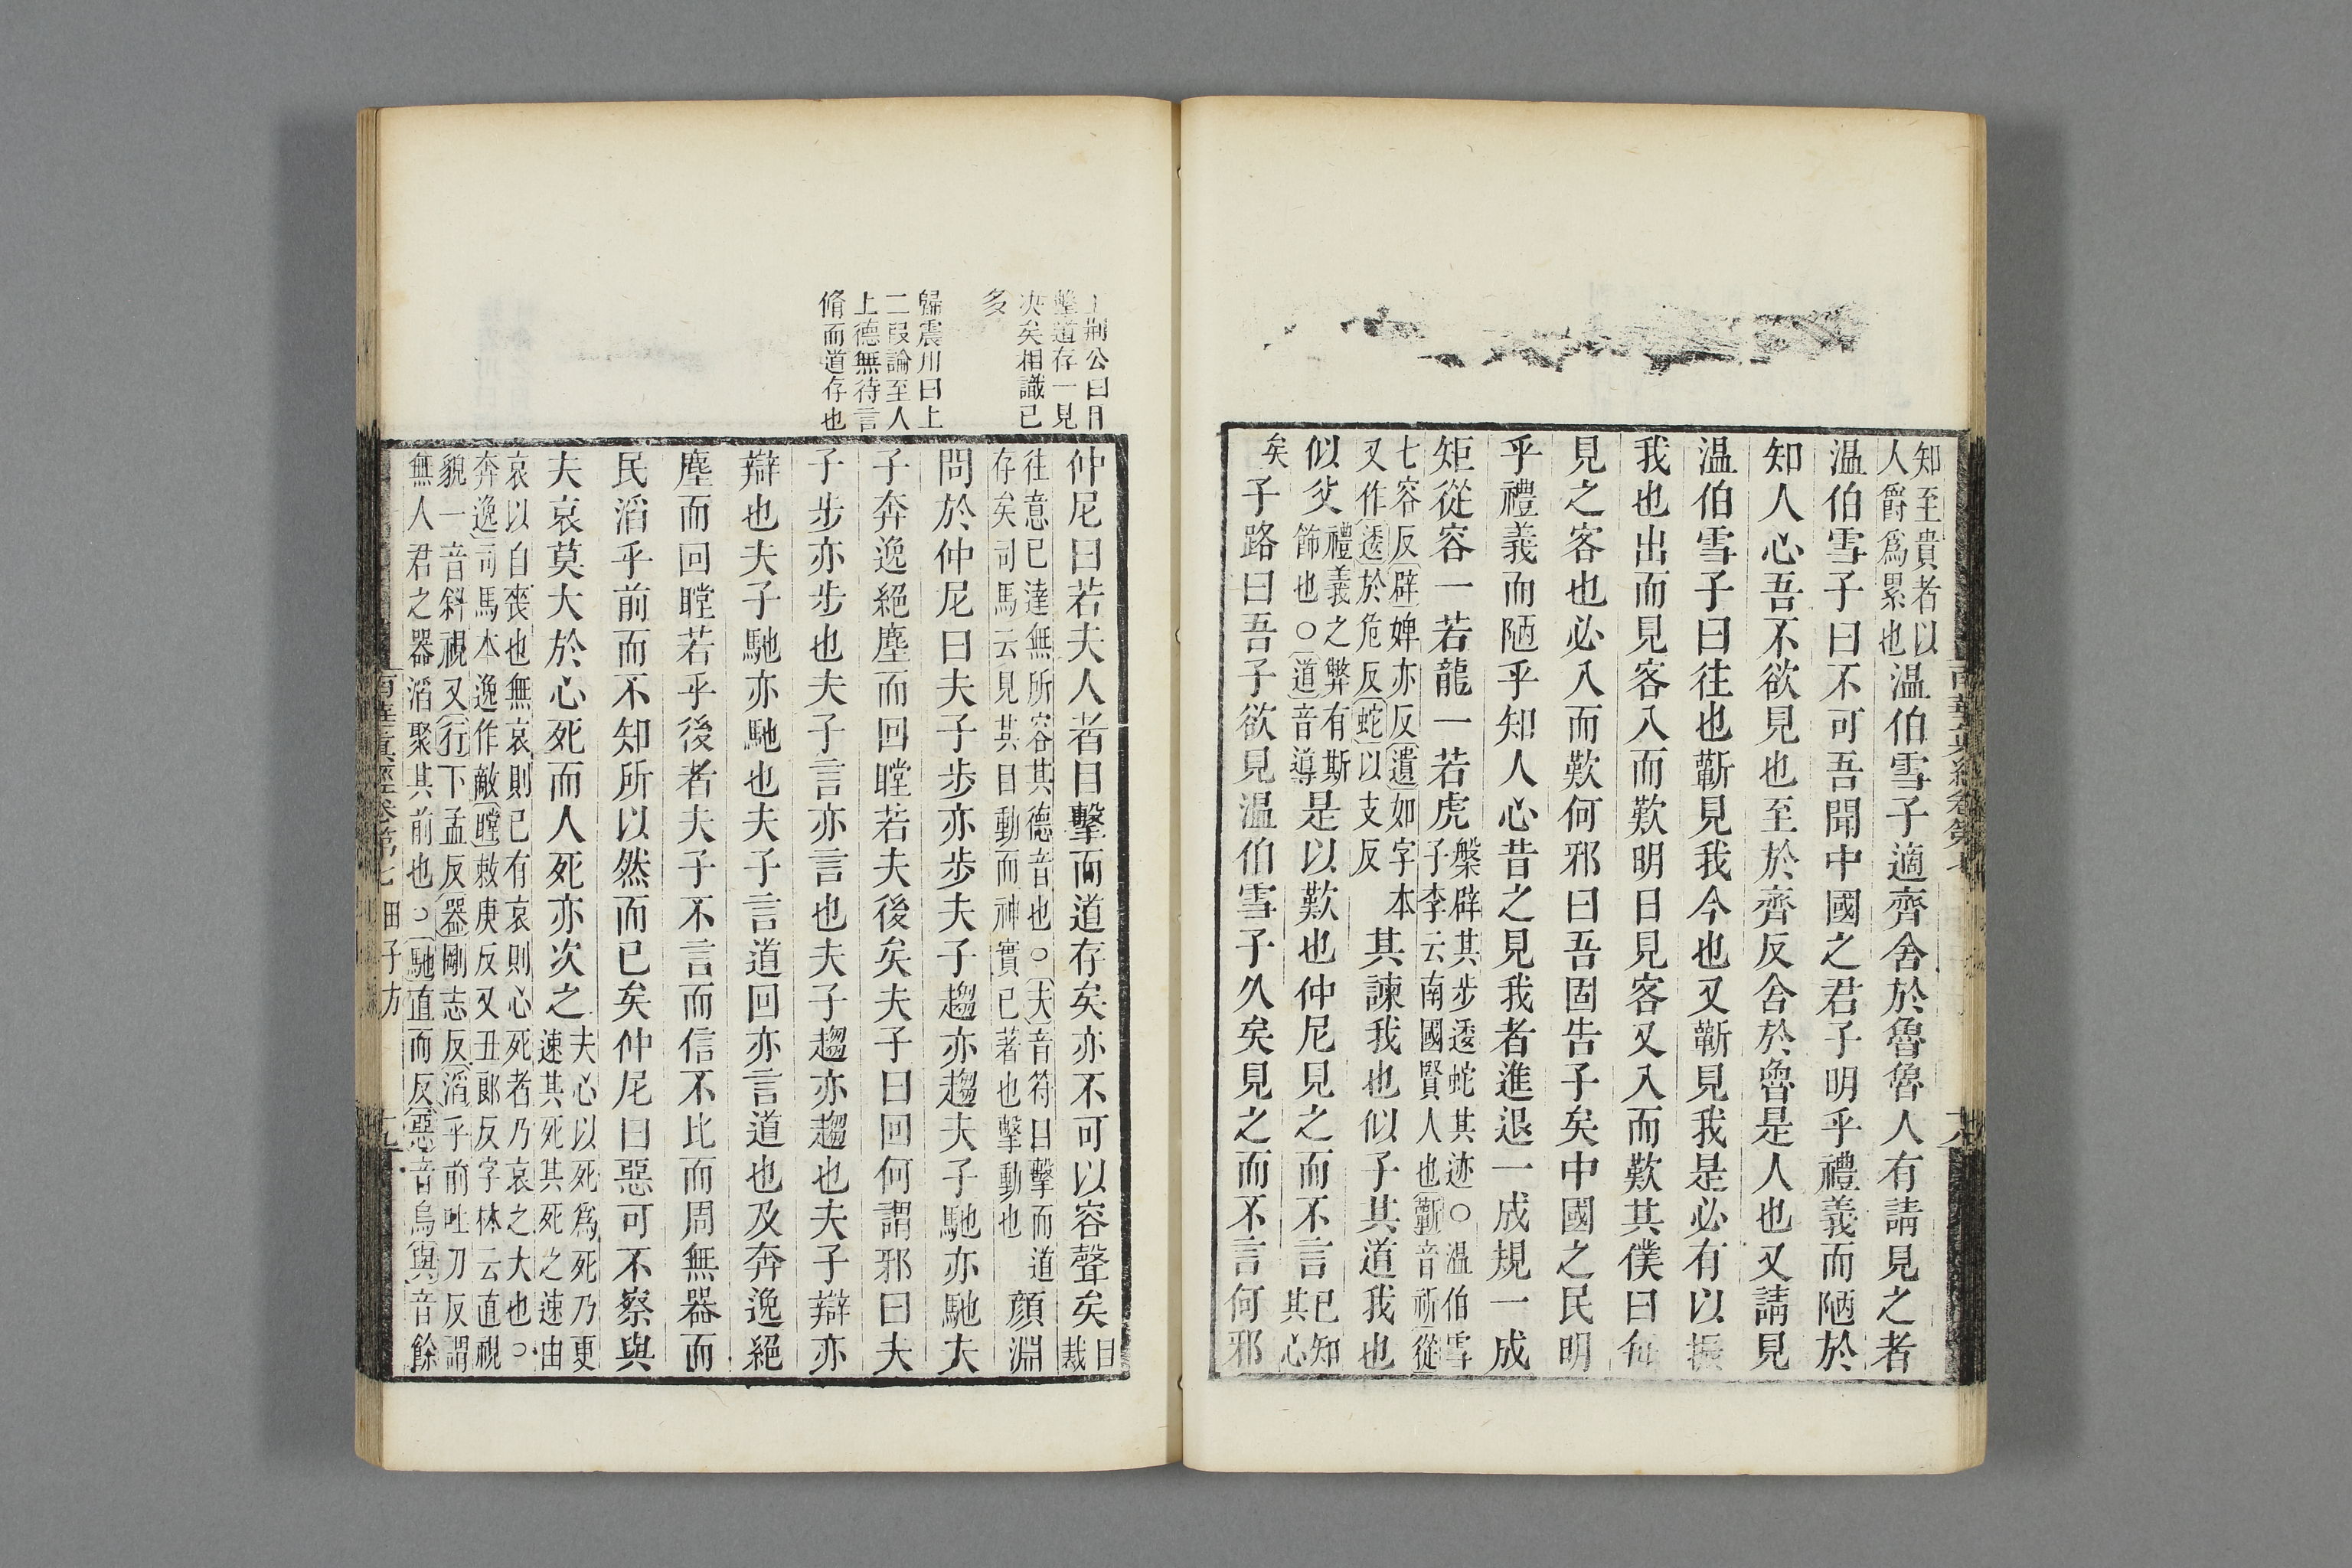 知至貴者以人爵爲累也温伯雪子適齊舍於魯魯人有請見之者
温伯雪子曰不可吾聞中國之君子明乎禮義而陋於
知人心吾不欲見也至於齊反舍於魯是人也又請見
温伯雪子曰往也蘄見我今也又蘄見我是必有以振
我也出而見客入而歎明日見客又入而歎其僕曰每
見之客也必入而歎何邪曰吾固告子矣中國之民明
乎禮義而陋乎知人心昔之見我者進退一成規一成
矩從容一若龍一若虎槃辟其步逶蛇其迹○温伯雪子李云南國賢人也蘄音祈從
七容反辟婢亦反遺如字本又作逶於危反蛇以支反其諫我也似子其道我也
似父禮義之弊有斯飾也○道音導是以歎也仲尼見之而不言已知其心
矣子路曰吾子欲見温伯雪子久矣見之而不言何邪
荆公曰目
擊道存一見
决矣相識已
多
歸震川曰上
二叚論至人
上德無待言
脩而道存也
仲尼曰若夫人者目擊而道存矣亦不可以容聲矣目裁
往意已達無所容其德音也○夫音符目擊而道存矣司馬云見其目動而神實已著也擊動也顏淵
問於仲尼曰夫子步亦步夫子趨亦趨夫子馳亦馳夫
子奔逸絕塵而回瞠若夫後矣夫子曰回何謂邪曰夫
子步亦步也夫子言亦言也夫子趨亦趨也夫子辯亦
辯也夫子馳亦馳也夫子言道回亦言道也及奔逸絕
塵而回瞠若乎後者夫子不言而信不比而周無器而
民滔乎前而不知所以然而已矣仲尼曰惡可不察與
夫哀莫大於心死而人死亦次之夫心以死爲死乃更速其死其死之速由
哀以自喪也無哀則已有哀則心死者乃哀之大也○奔逸司馬本逸作敵瞠敕庚反又丑郞反字林云直視
貌一音斜視又行下孟反器剛志反滔乎前吐刀反謂無人君之器滔聚其前也○馳直而反惡音烏與音餘
南華眞經卷第七 田子方 十九
南華眞經卷第七 十八